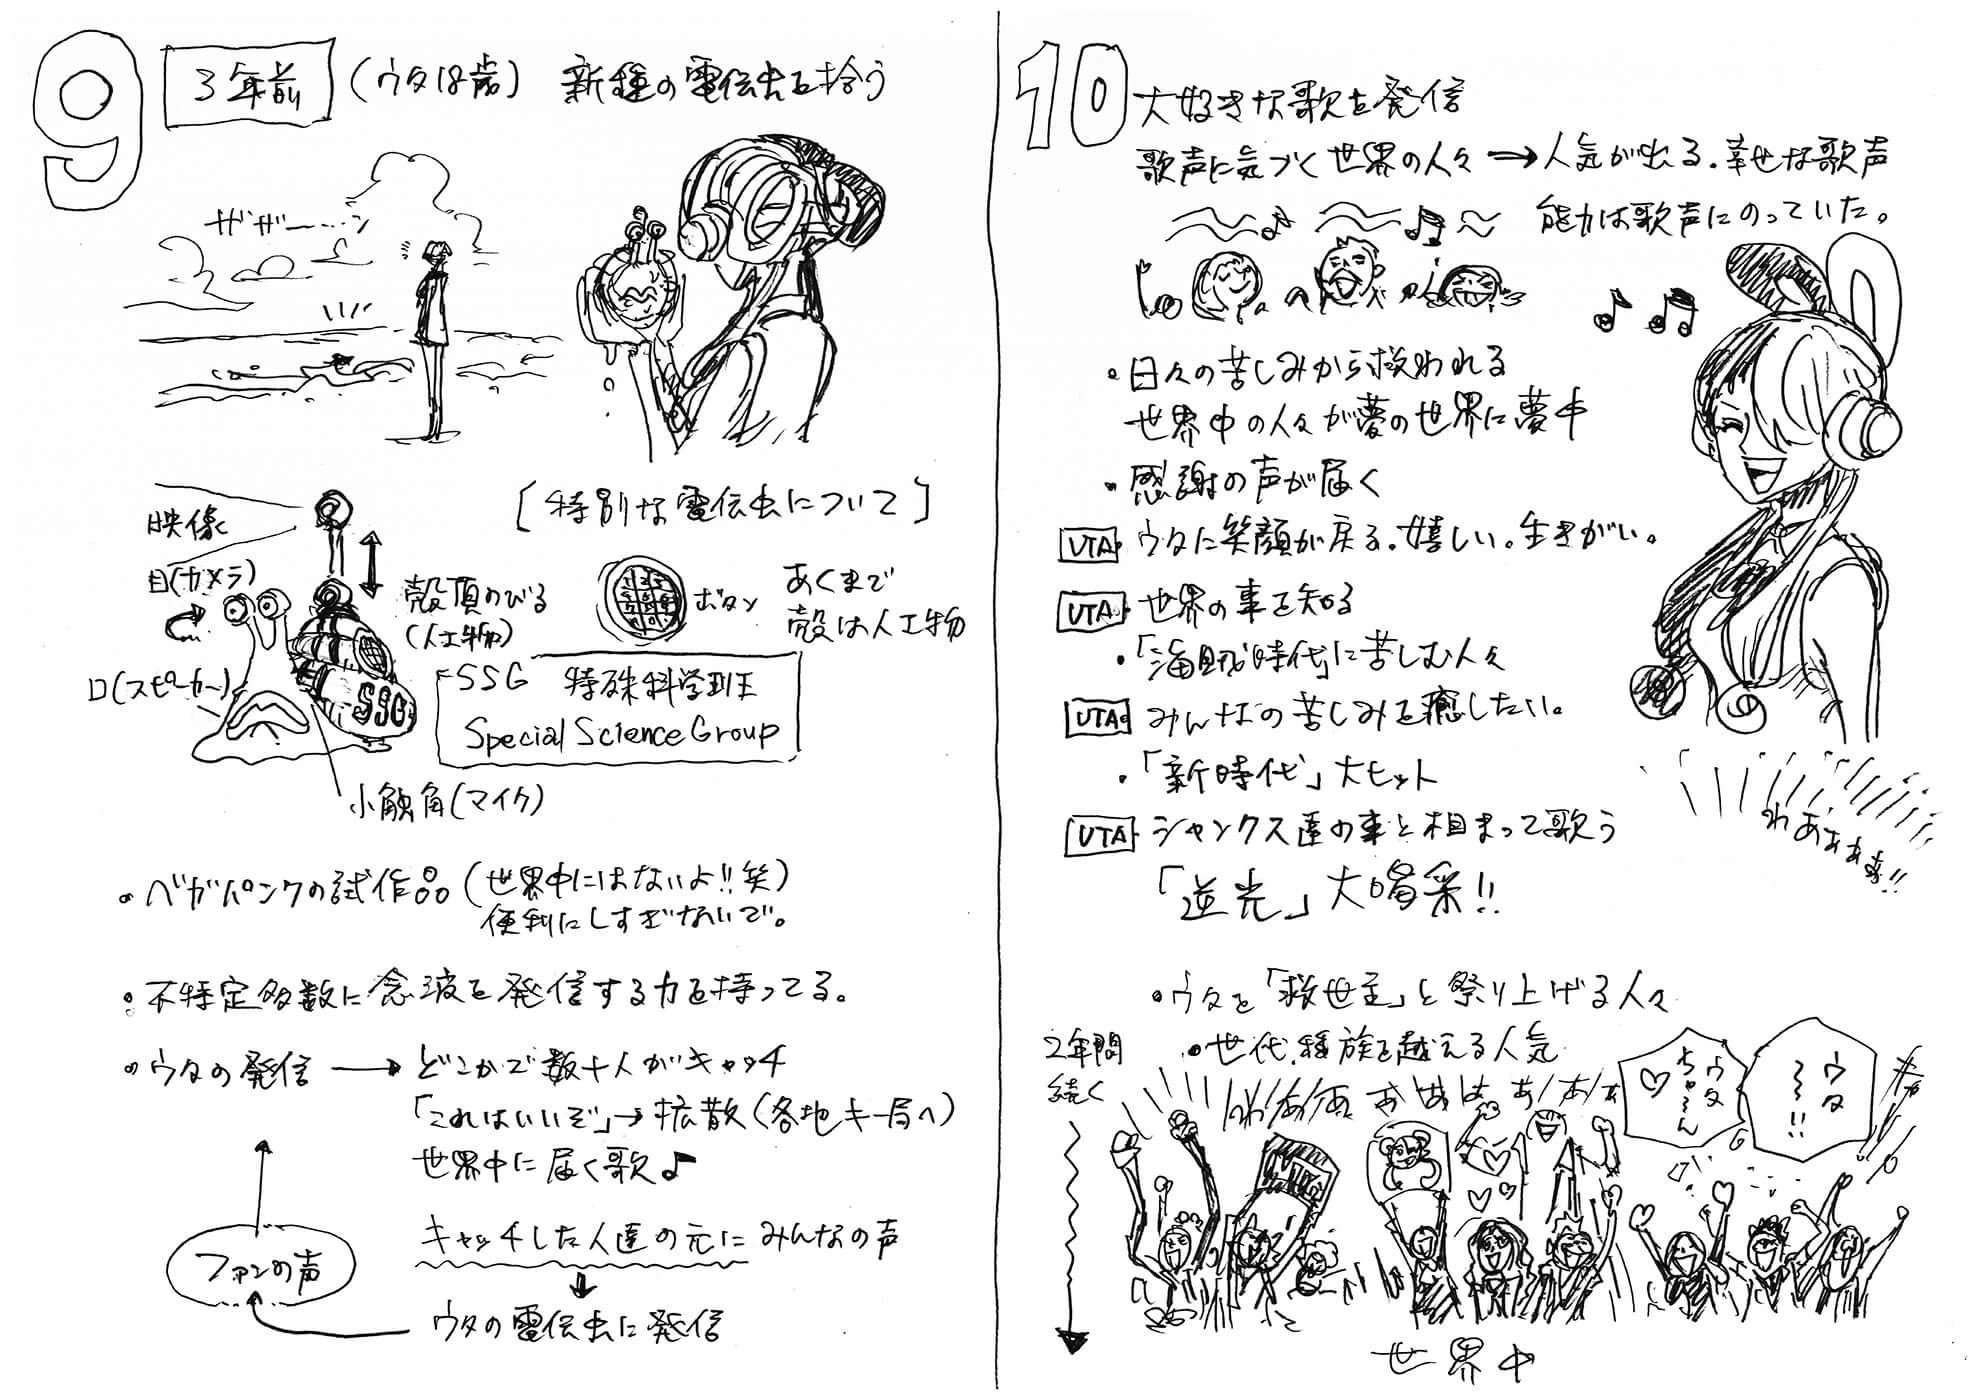 9
3年前 (ウタ18歳) 新種の電伝虫を拾う
ザザー……ン
[特別な電伝虫について]
映像
目(カメラ)
殻頂のびる
(人工物)
ボタン
あくまで
殻は人工物
口(スピーカー)
SSG
SSG 特殊科学班
Special Science Group
小触角(マイク)
・ベガパンクの試作品(世界中にはないよ!!笑)
便利にしすぎないで。
・不特定多数に念波を発信する力を持ってる。
・ウタの発信→どこかで数十人がキャッチ
「これはいいぞ」→拡散(各地キー局へ)
世界中に届く歌♪
キャッチした人達の元にみんなの声
ファンの声
ウタの電伝虫に発信
10
大好きな歌を発信
歌声に気づく世界の人々→人気が出る.幸せな歌声
能力は歌声にのっていた。
・日々の苦しみから救われる
世界中の人々が夢の世界に夢中
・感謝の声が届く
UTA ウタに笑顔が戻る.嬉しい。生きがい。
UTA 世界の事を知る
・「海賊時代」に苦しむ人々
UTA みんなの苦しみを癒したい。
・「新時代」大ヒット
UTA シャンクス達の事と相まって歌う
「逆光」大喝采!!
わあぁぁぁ!!
・ウタを「救世主」と祭り上げる人々
2年間
続く
・世代.種族を越える人気
ウタ
ちゃ〜ん
♡
ウタ
〜〜!!
UTA
世界中